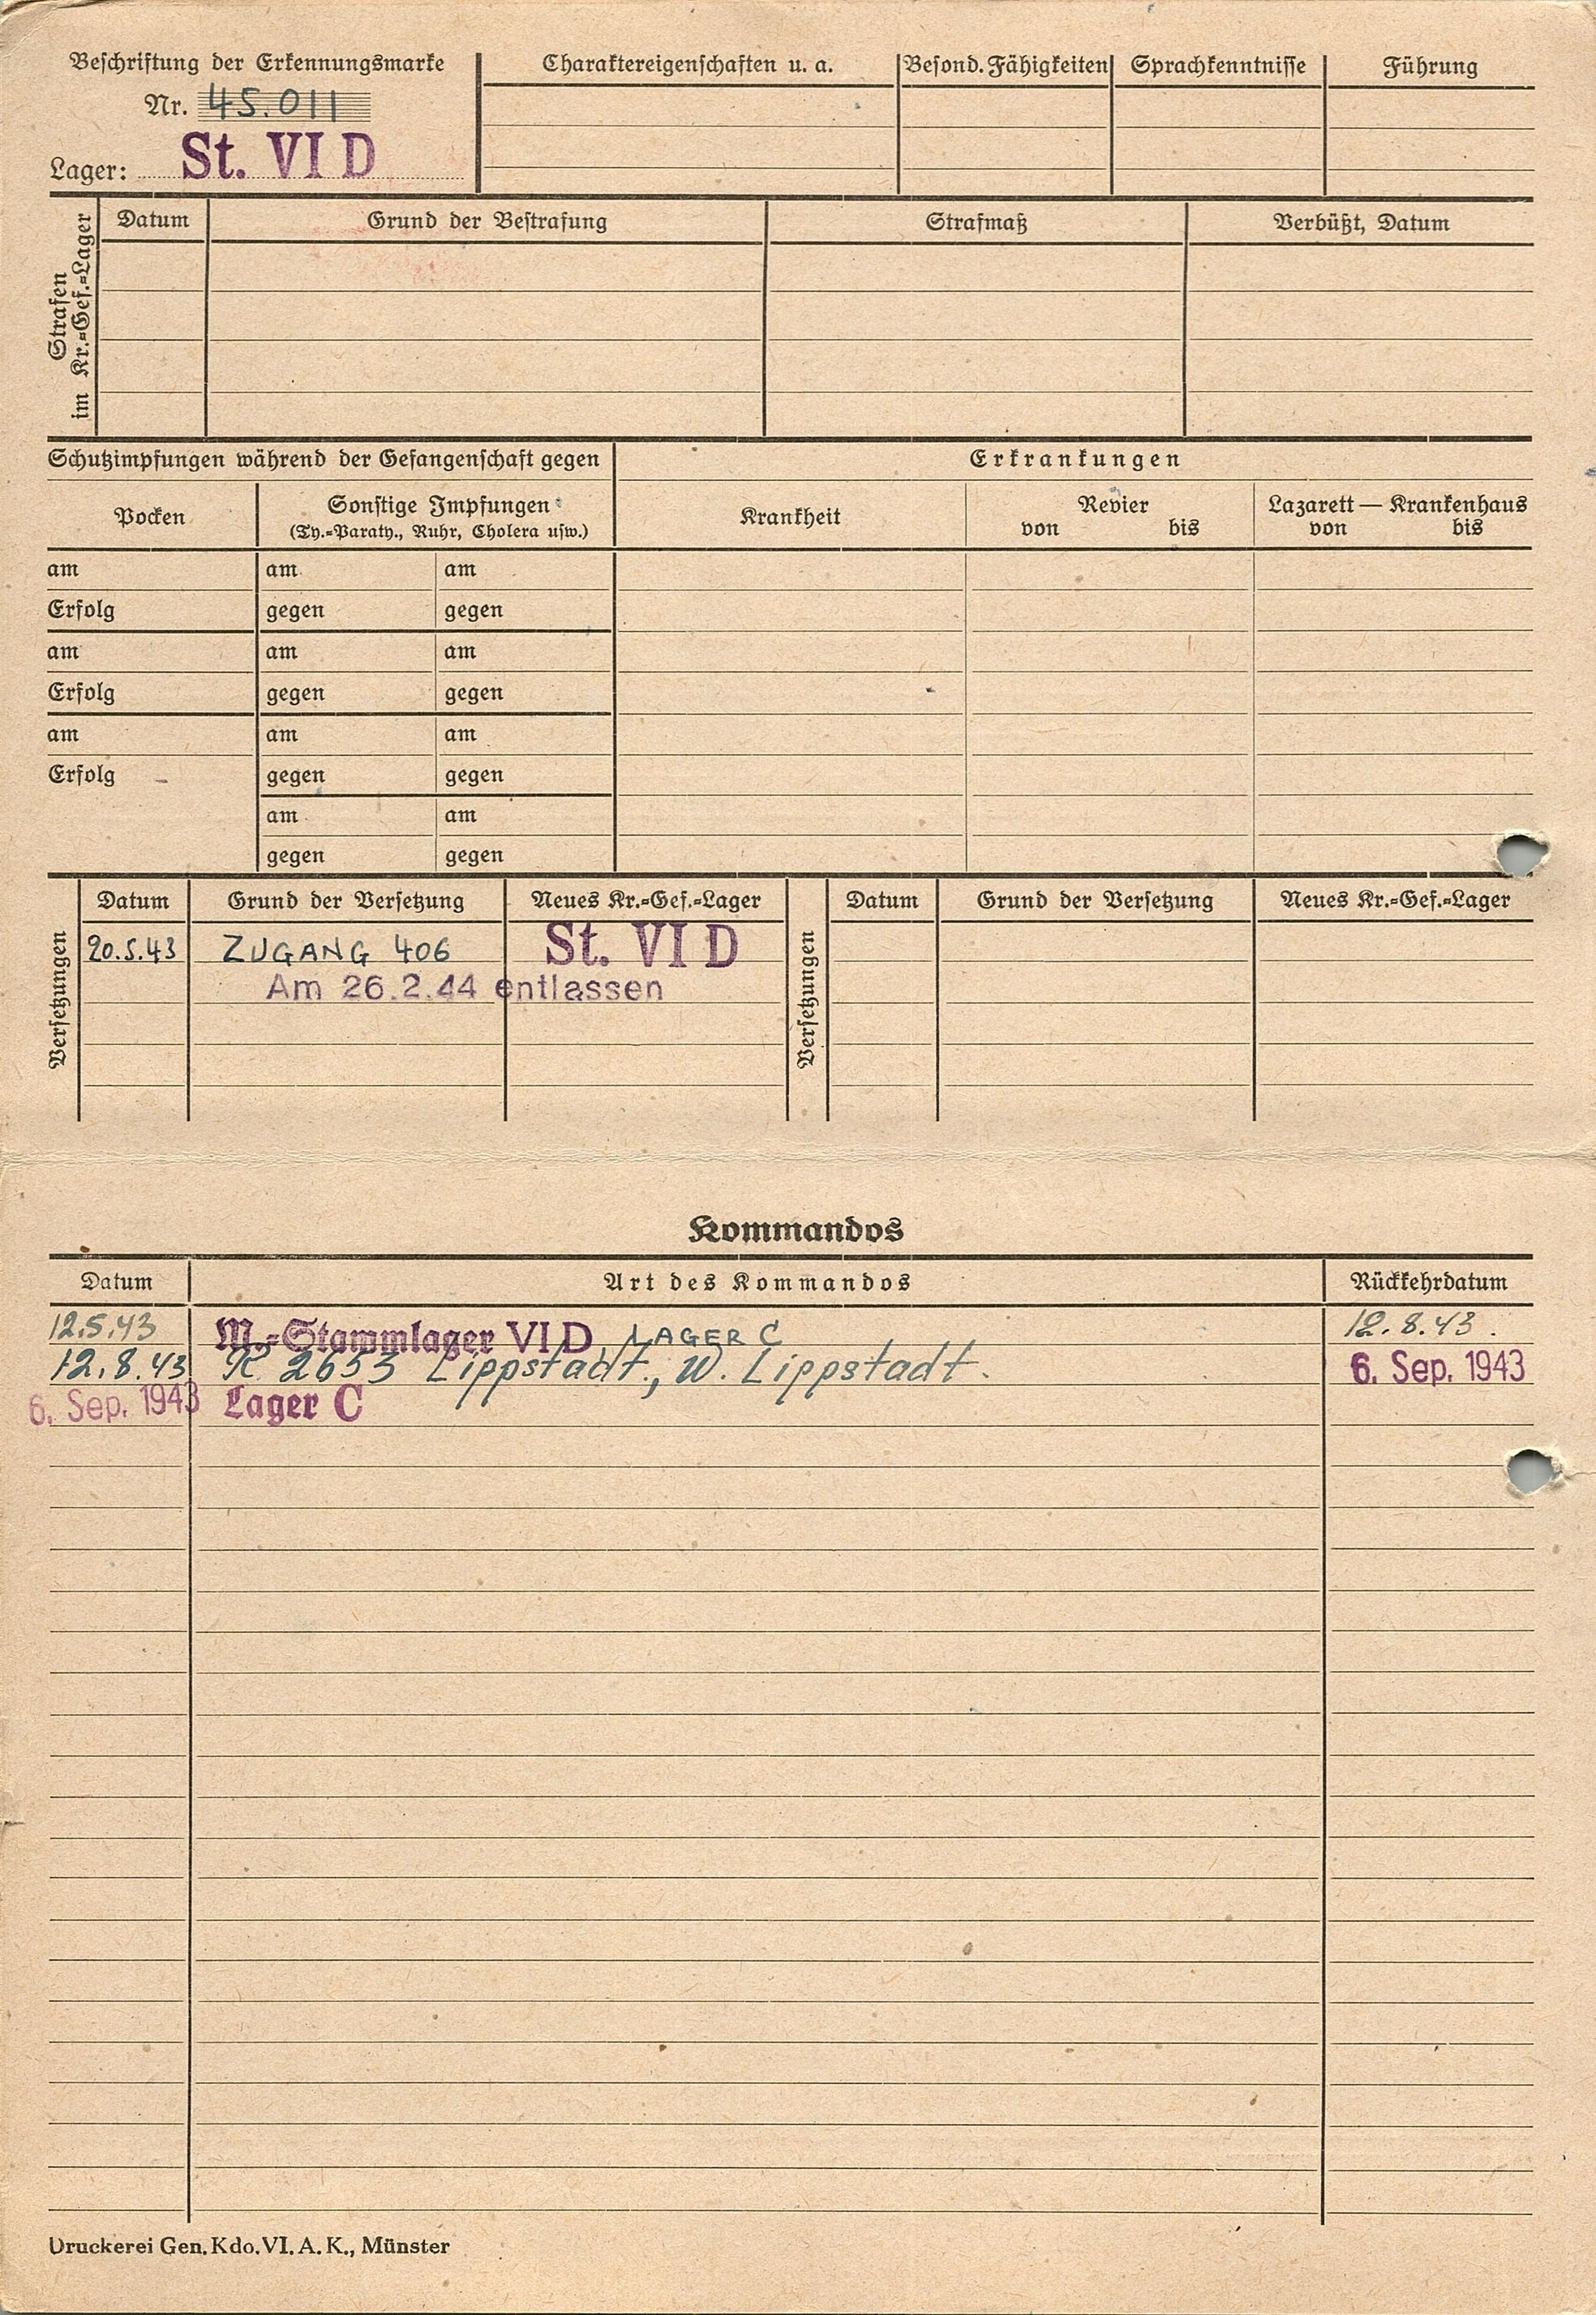 Beschriftung der Erkennungsmarke
Nr. 45.011
Lager: St. VI D
Charaktereigenschaften u. a.
Besond. Fähigkeiten
Sprachkenntnisse
Führung
Strafen
im Kr.=Gef.=Lager
Datum
Grund der Bestrafung
Strafmaß
Verbüßt, Datum
Schutzimpfungen während der Gefangenschaft gegen
Erkrankungen
Pocken
Sonstige Impfungen
(Ty.=Paraty., Ruhr, Cholera usw.)
Krankheit
Revier
von bis
Lazarett — Krankenhaus
von bis
am am am
Erfolg gegen gegen
am am am
Erfolg gegen gegen
am am am
Erfolg gegen gegen
am am
gegen gegen
Versetzungen
Datum Grund der Versetzung Neues Kr.=Gef.=Lager
20.5.43 ZUGANG 406 St. VI D
Am 26.2.44 entlassen
Versetzungen
Datum Grund der Versetzung Neues Kr.=Gef.=Lager
Kommandos
Datum Art des Kommandos Rückkehrdatum
12.5.43 M.=Stammlager VI D LAGER C 12.8.43.
12.8.43 K 2653 Lippstadt, W. Lippstadt. 6. Sep. 1943
6. Sep. 1943 Lager C
Druckerei Gen. Kdo. VI. A. K., Münster